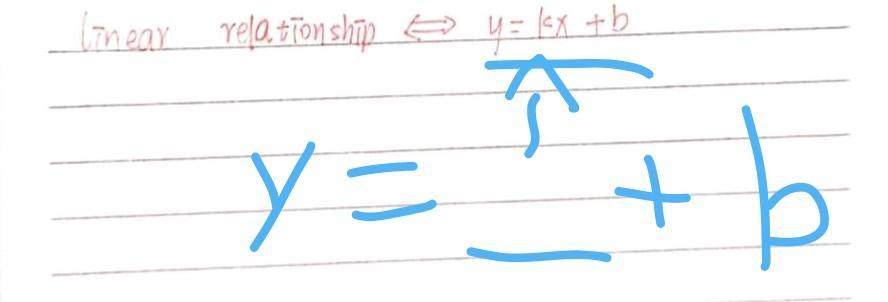 linear relationship ⟺ y = kx + b
y = __ + b